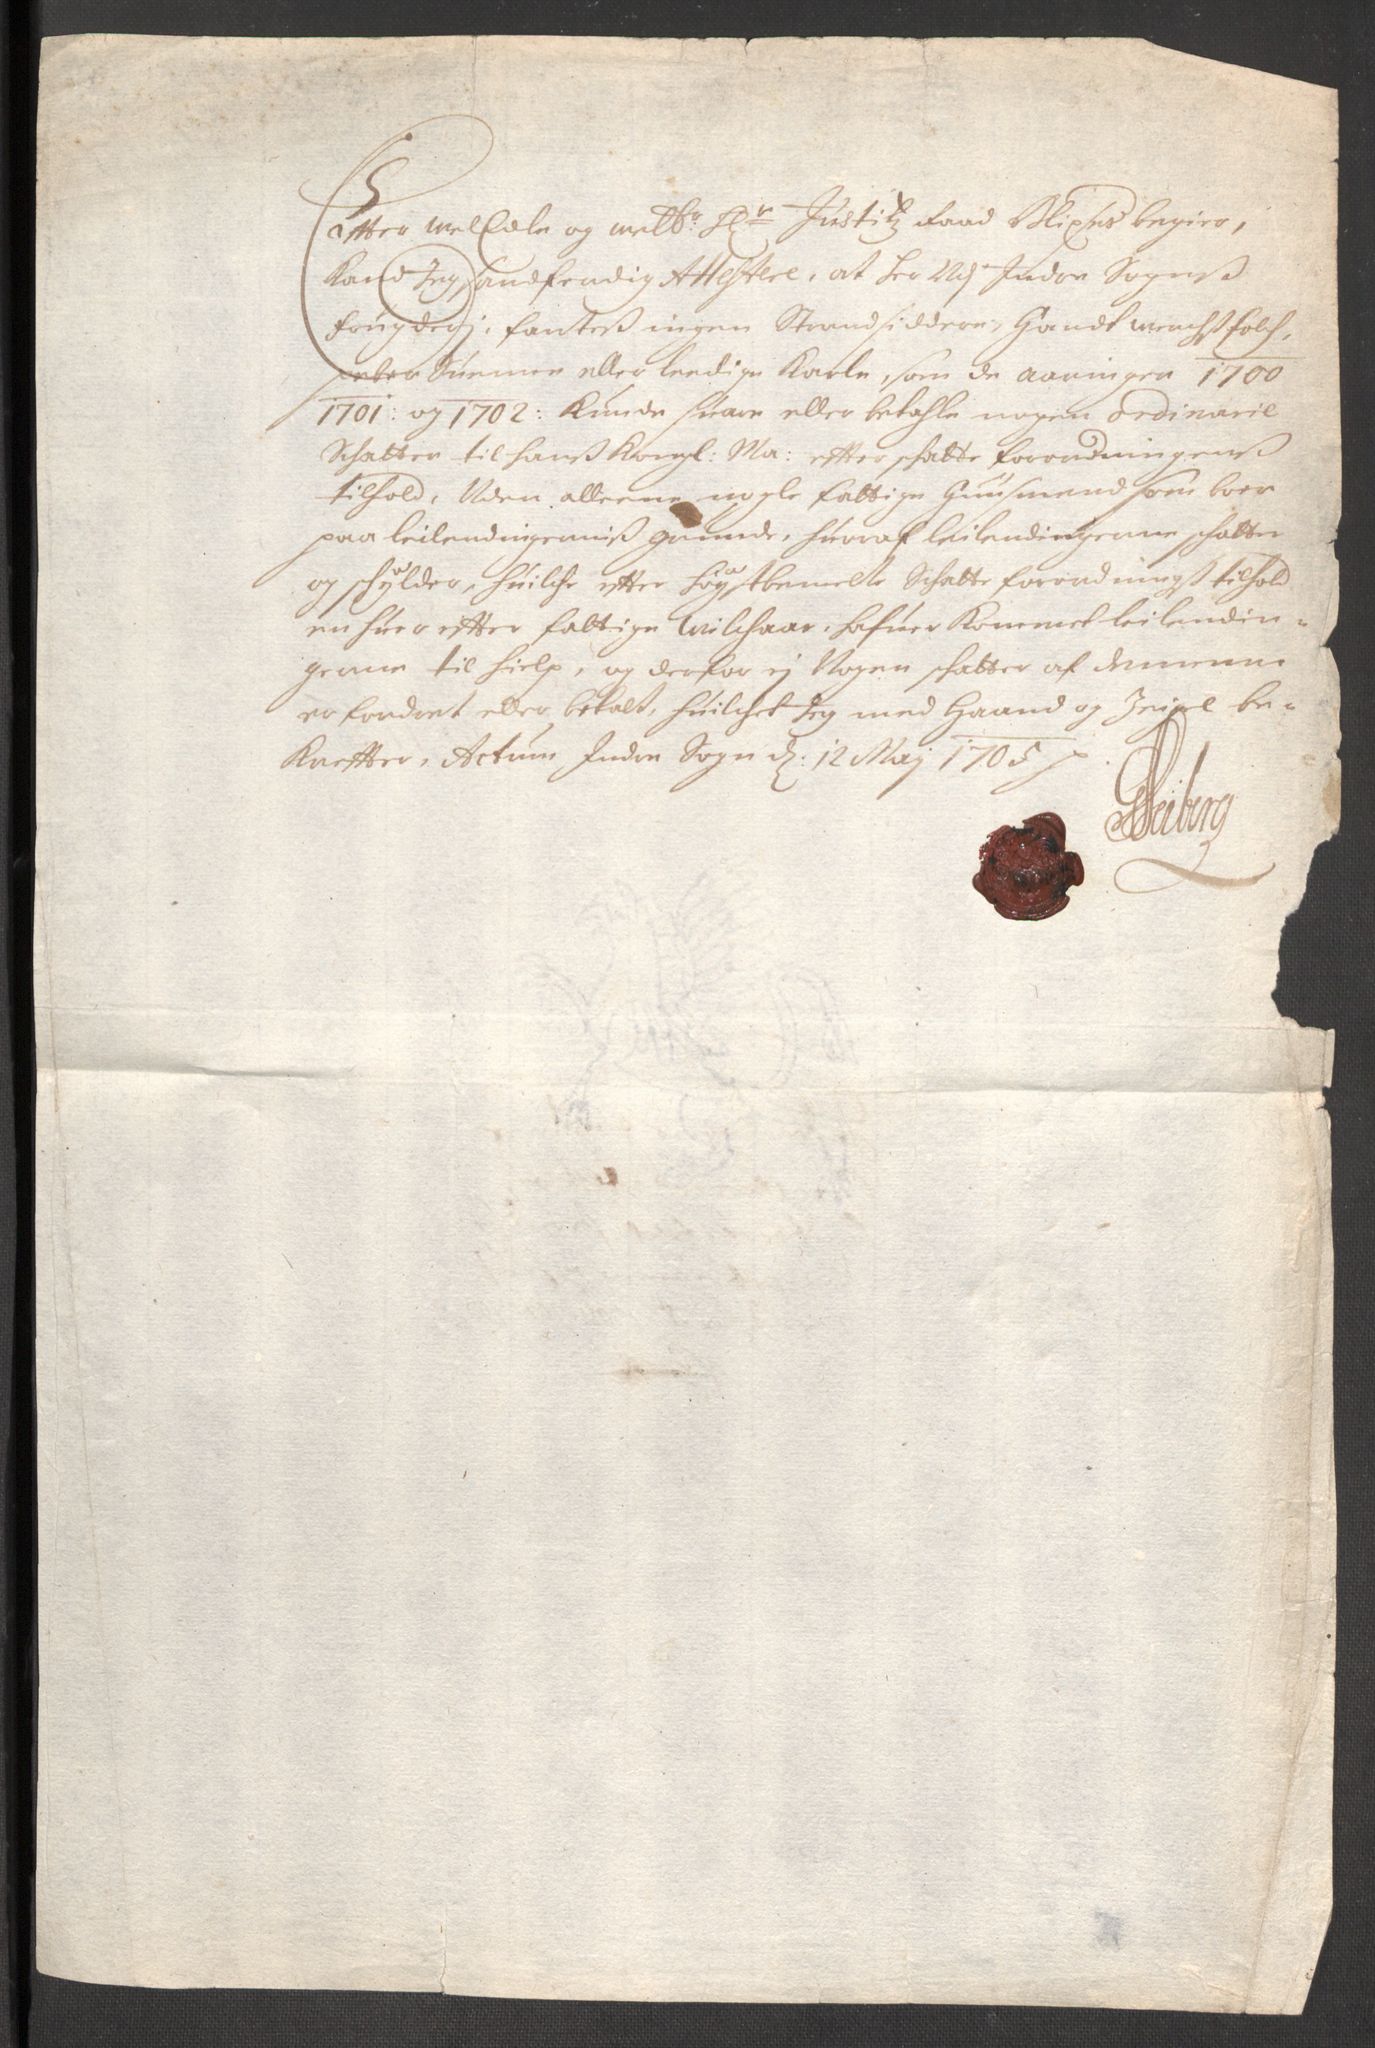 Effter WelEdle og Welb: Hr Justitz Raad Blixens begier,
Kand Jeg sandferdig Attestere, at her Udj Indre Sogns
fougderj, fantes ingen Strandsiddere, Handtwerchsfolch,
Suenne eller leedige Karle, som de aaringer 1700
1701: og 1702: Kunde suare eller betahle nogen ordinarie
Schatter til hans Kongl: Ma: effter schatte forordningens
tilhold, Uden alleene nogle fattige Huusmend som boer
paa leilendingernis grunde, huoraf leilendingerne schatter
og schylder, huilche effter høystbemelte Schatte forordnings tilhold
en huer effter fattige Wilchaar, hafuer Kommet leilendin-
gerne til hielp, og derfor ej Nogen schatter af dennem
er fordret eller betalt, huilchet Jeg med Haand og Zeigel be-
Kreffter, Actum Indre Sogn d: 12 Maj 1705
Heiberg